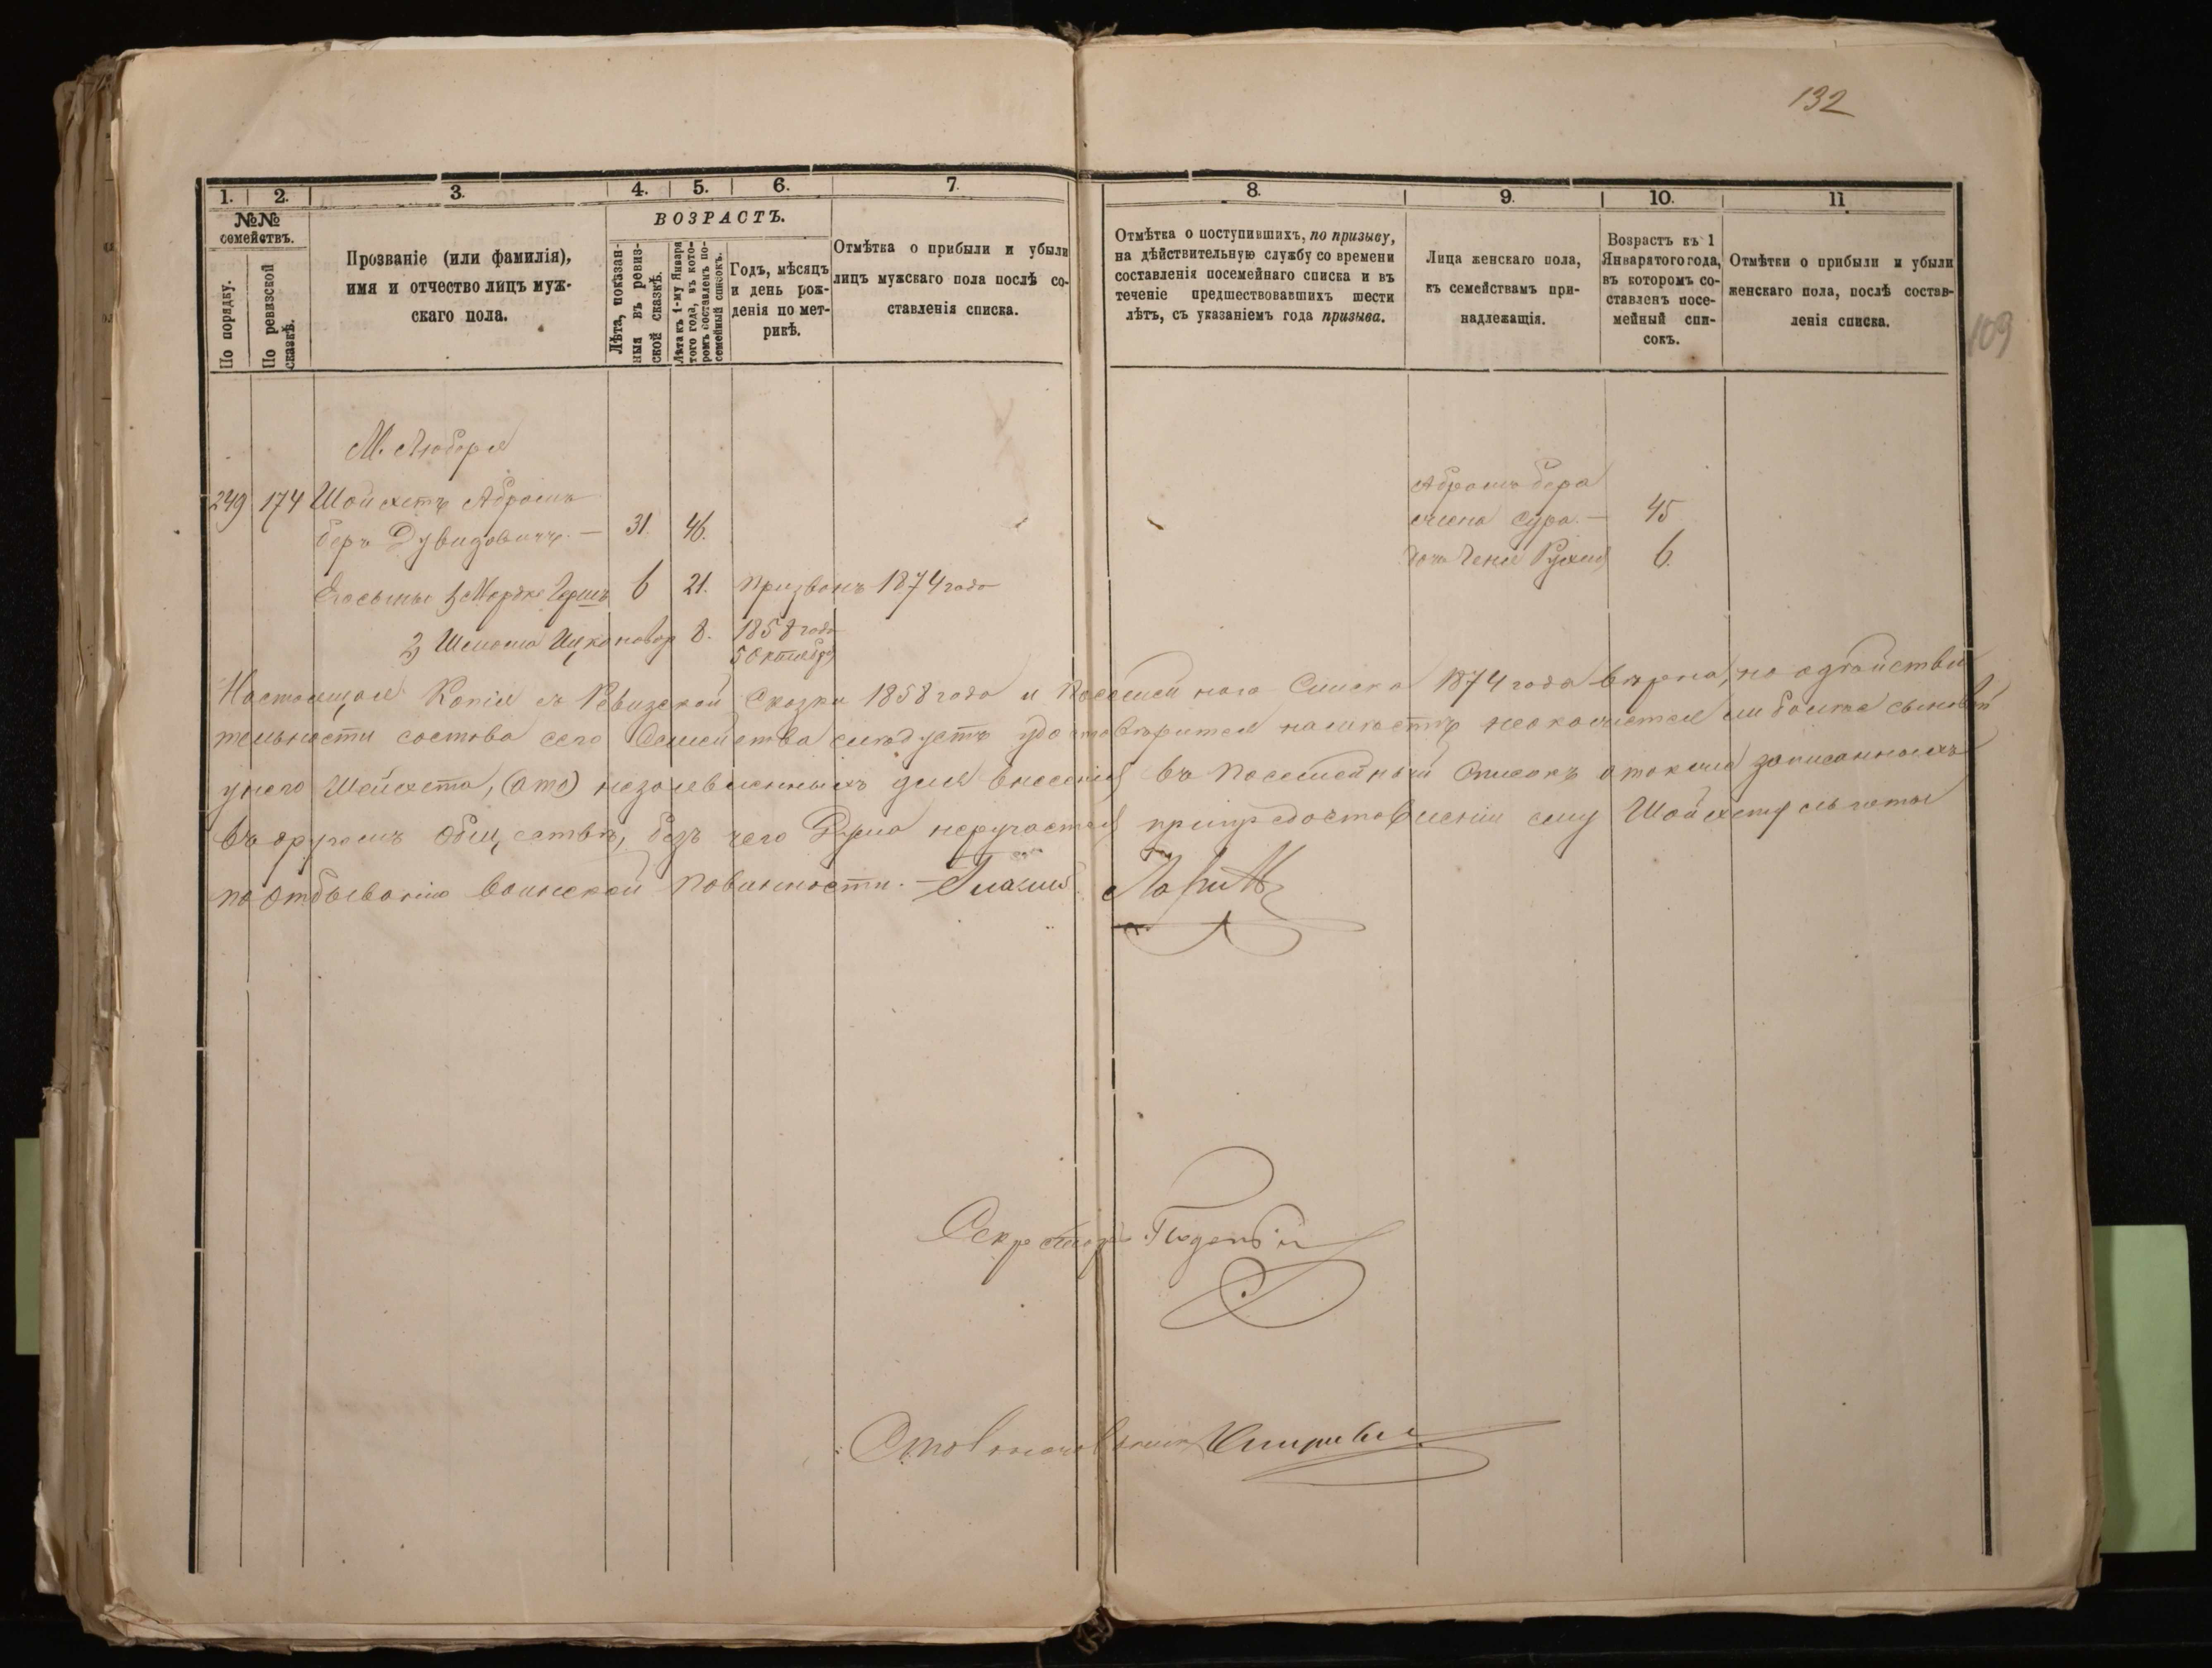 132
1. 2. 3. 4. 5. 6. 7. 8. 9. 10. 11
№№ семействъ.
По порядку.
По ревизской сказкѣ.
Прозваніе (или фамилія),
имя и отчество лицъ муж-
скаго пола.
ВОЗРАСТЪ.
Лѣта, показан-
ныя въ ревиз-
ской сказкѣ.
Лѣта къ 1-му Января
того года, въ кото-
ромъ составленъ по-
семейный списокъ.
Годъ, мѣсяцъ
и день рож-
денія по мет-
рикѣ.
Отмѣтка о прибыли и убыли
лицъ мужскаго пола послѣ со-
ставленія списка.
Отмѣтка о поступившихъ, по призыву,
на дѣйствительную службу со времени
составленія посемейнаго списка и въ
теченіе предшествовавшихъ шести
лѣтъ, съ указаніемъ года призыва.
Лица женскаго пола,
къ семействамъ при-
надлежащія.
Возрастъ къ 1
Января того года,
въ которомъ со-
ставленъ посе-
мейный спи-
сокъ.
Отмѣтки о прибыли и убыли
женскаго пола, послѣ состав-
ленія списка.
109
М. Любаря
249 174 Шойхетъ Абрамъ
беръ Дувидовичъ. — 31. 46.
Его сыны 1, Мордко Гершъ 6 21. Призванъ 1874 года
2, Шлиома Ицко новор 8. 1858 года
5 Октября
Абрамъ бера
жена Сура. — 45
дочь Рухля 6.
Настоящая Копія съ Ревизской Сказки 1858 года и Посемейнаго Списка 1874 года вѣрна, но о дѣйстви
тельности состава сего Семейства слѣдуетъ удостовѣриться на мѣстѣ не окажется ли болѣе сыновей
у него Шойхета, (а то) незаявленныхъ для внесенія въ Посемейный Списокъ а также записанныхъ
въ другомъ Обществѣ, безъ чего Дума не ручается при предоставленіи ему Шойхету льготы
по отбыванію воинской повинности. —
Секретарь
Столоначальникъ